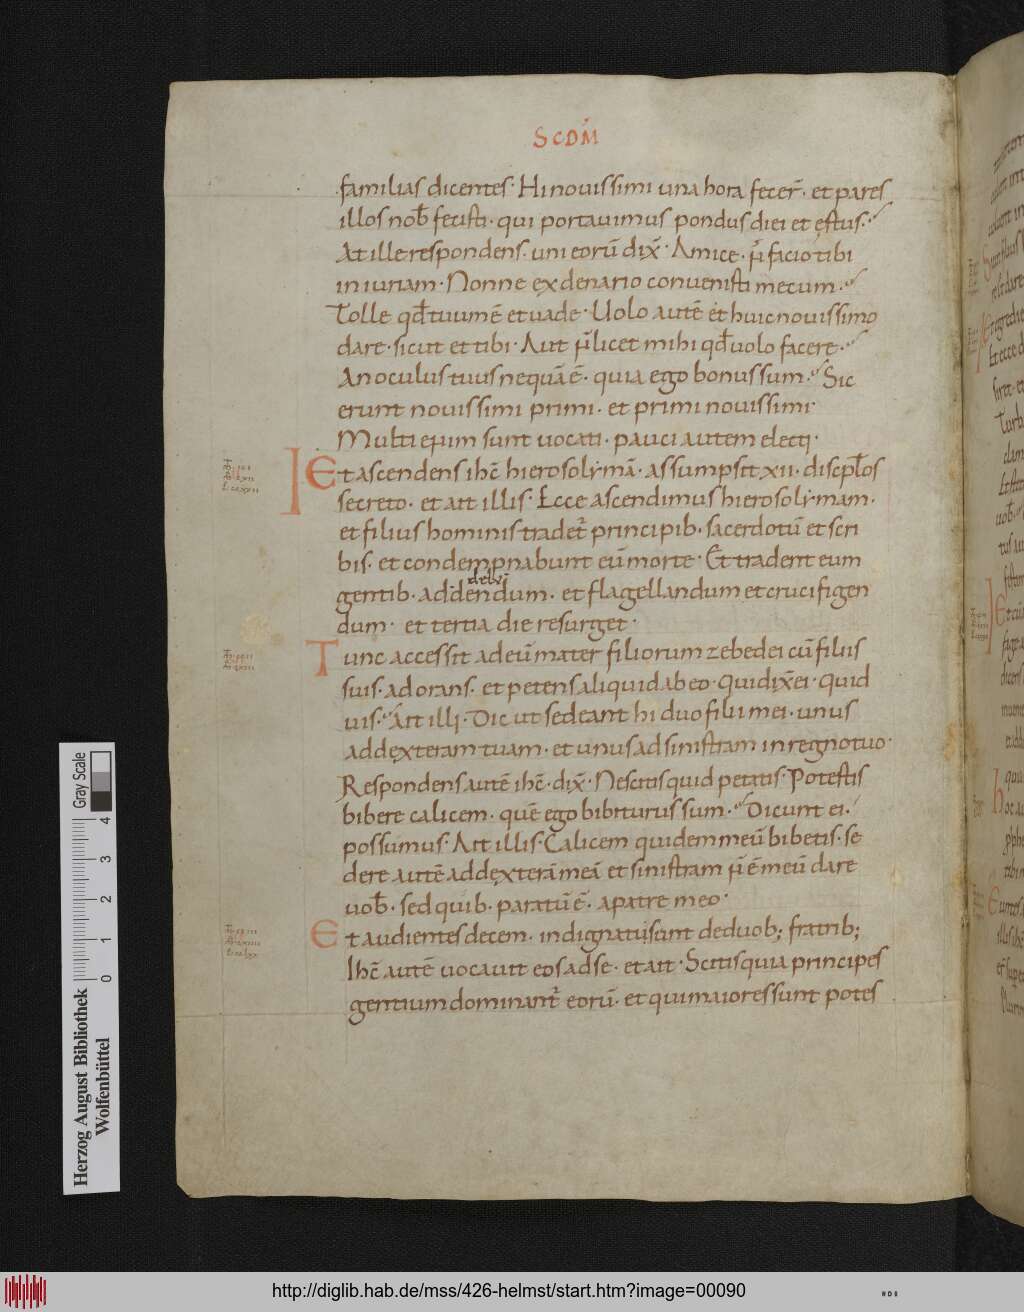 SCDM̄
familias dicentes· Hi nouissimi una hora fecer̄· et pares
illos nob̄ fecisti· qui portauimus pondus diei et ęstus·
At ille respondens· uni eorū dix̄· Amice· n̄ facio tibi
iniuriam· Nonne ex denario conuenisti mecum·
Tolle qđ tuum ē et uade· Uolo autē et huic nouissimo
dare· sicut et tibi· Aut n̄ licet mihi qđ uolo facere·
An oculus tuus nequā ē· quia ego bonus sum· Sic
erunt nouissimi primi· et primi nouissimi
Multi enim sunt uocati· pauci autem electi·
Et ascendens ihc̄ hierosolymā· assumpsit xii· discpl̄os
secreto· et ait illis· Ecce ascendimus hierosolymam·
et filius hominis tradet̄ principib· sacerdotū et scri
bis· et condempnabunt eū morte· Et tradent eum
gentib· addendum· et flagellandum et crucifigen
dum· et tertia die resurget·
Tunc accessit ad eū mater filiorum zebedei cū filiis
suis· adorans· et petens aliquid ab eo· Qui dix̄ ei· quid
uis· Ait illi· Dic ut sedeant hi duo filii mei· unus
ad dęxteram tuam· et unus ad sinistram in regno tuo·
Respondens autē ihc̄· dix̄· Nescitis quid petatis· Potestis
bibere calicem· quē ego bibiturus sum· Dicunt ei·
possumus· Ait illis· Calicem quidem meū bibetis· se
dere autē ad dęxterā meā et sinistram n̄ ē meū dare
uob̄· sed quib· paratū ē· a patre meo·
Et audientes decem· indignati sunt de duob; fratrib;
Ihc̄ autē uocauit eos ad se· et ait· Scitis quia principes
gentium dominant̄ eorū· et qui maiores sunt potes
Gray Scale
0 1 2 3 4
Herzog August Bibliothek
Wolfenbüttel
http://diglib.hab.de/mss/426-helmst/start.htm?image=00090